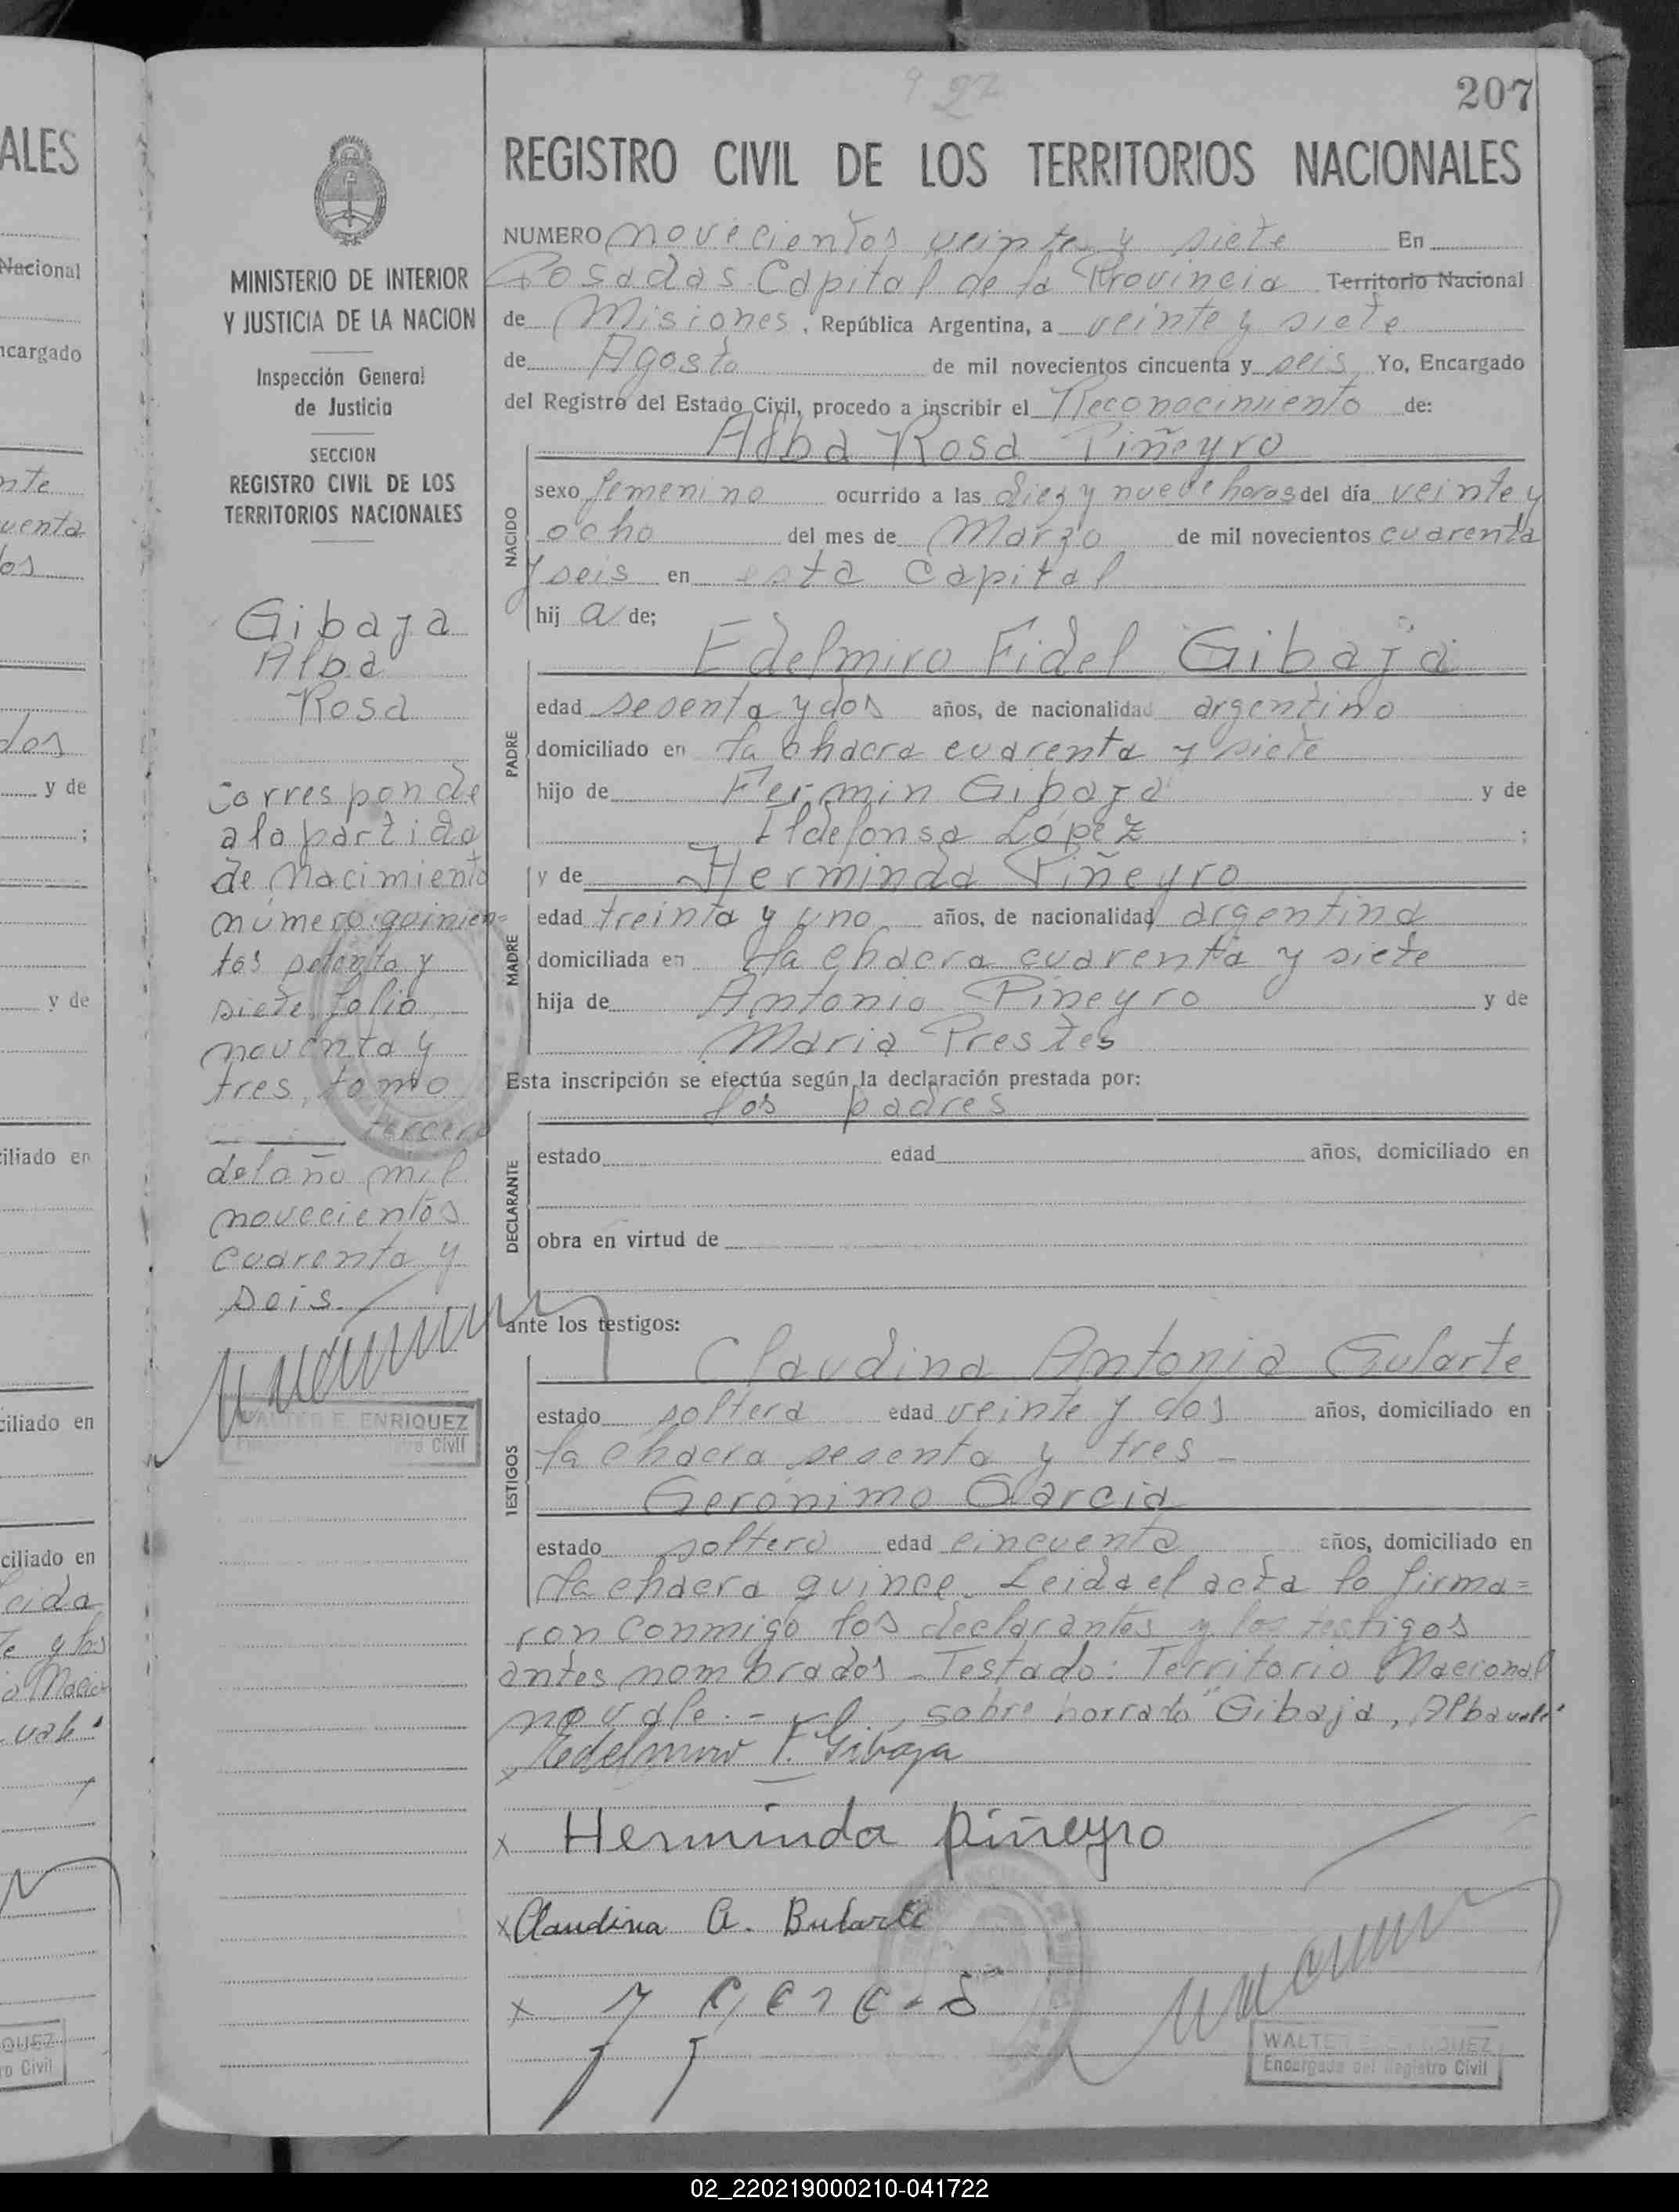 ALES
Nacional
ncargado
nte
uenta
os
dos
y de
;
y de
ciliado en
ciliado en
ciliado en
cida
e y los
o Nacio
vale
QUEZ
ro Civil
MINISTERIO DE INTERIOR
Y JUSTICIA DE LA NACION
Inspección General
de Justicia
SECCION
REGISTRO CIVIL DE LOS
TERRITORIOS NACIONALES
Gibaja
Alba
Rosa
Corresponde
a la partida
de Nacimiento
número quinien=
tos setenta y
siete, folio
noventa y
tres, tomo
tercero
del año mil
novecientos
cuarenta y
seis.
WALTER E. ENRIQUEZ
Civil
927
207
REGISTRO CIVIL DE LOS TERRITORIOS NACIONALES
NUMERO novecientos veinte y siete En
Posadas Capital de la Provincia Territorio Nacional
de Misiones, República Argentina, a veinte y siete
de Agosto de mil novecientos cincuenta y seis Yo, Encargado
del Registro del Estado Civil, procedo a inscribir el Reconocimiento de:
Alba Rosa Piñeyro
NACIDO
sexo femenino ocurrido a las diez y nueve horas del día veinte y
ocho del mes de Marzo de mil novecientos cuarenta
y seis en esta Capital
hij a de;
Edelmiro Fidel Gibaja
PADRE
edad sesenta y dos años, de nacionalidad argentino
domiciliado en la chacra cuarenta y siete
hijo de Fermin Gibaja y de
Ildefonsa López ;
y de Herminda Piñeyro
MADRE
edad treinta y uno años, de nacionalidad argentina
domiciliada en la chacra cuarenta y siete
hija de Antonio Piñeyro y de
Maria Prestes
Esta inscripción se efectúa según la declaración prestada por:
los padres
DECLARANTE
estado edad años, domiciliado en
obra en virtud de
ante los testigos:
Claudina Antonia Gularte
TESTIGOS
estado soltera edad veinte y dos años, domiciliado en
la chacra sesenta y tres
Gerónimo Garcia
estado soltero edad cincuenta años, domiciliado en
la chacra quince. Leida el acta la firma=
ron conmigo los declarantes y los testigos
antes nombrados - Testado: Territorio Nacional
no vale. - sobre borrado "Gibaja, Alba vale"
Edelmiro F. Gibaja
x Herminda Piñeyro
x Claudina A. Gularte
x
WALTER E. ENRIQUEZ
Encargado del Registro Civil
02_220219000210-041722